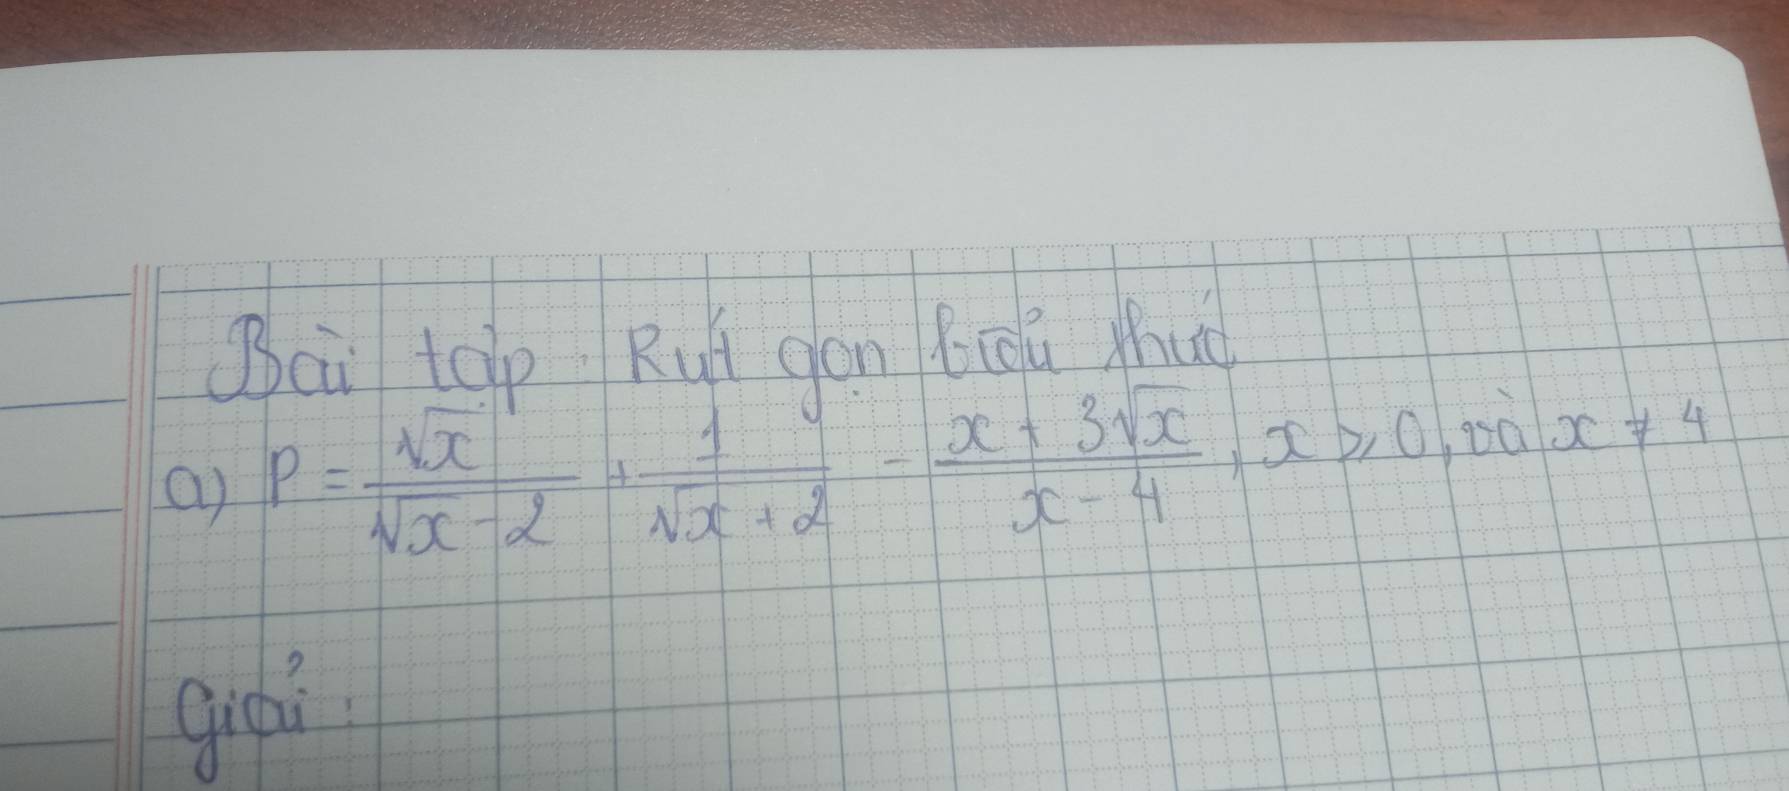 Bài tập: Rút gọn biểu thức
a) P = √x / (√x - 2) + 1 / (√x + 2) - (x + 3√x) / (x - 4), x ≥ 0, và x ≠ 4
Giải: